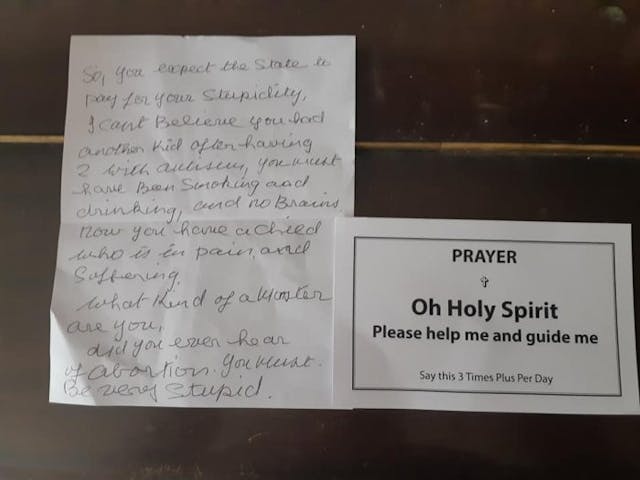 So, you expect the State to
pay for your Stupidity,
I can't Believe you had
another kid after having
2 with autism, you must
have Been Smoking and
drinking, and no Brains
now you have a child
who is in pain and
Suffering.
what kind of a Monster
are you,
did you ever hear
of abortion. You must
Be very Stupid.
PRAYER
Oh Holy Spirit
Please help me and guide me
Say this 3 Times Plus Per Day